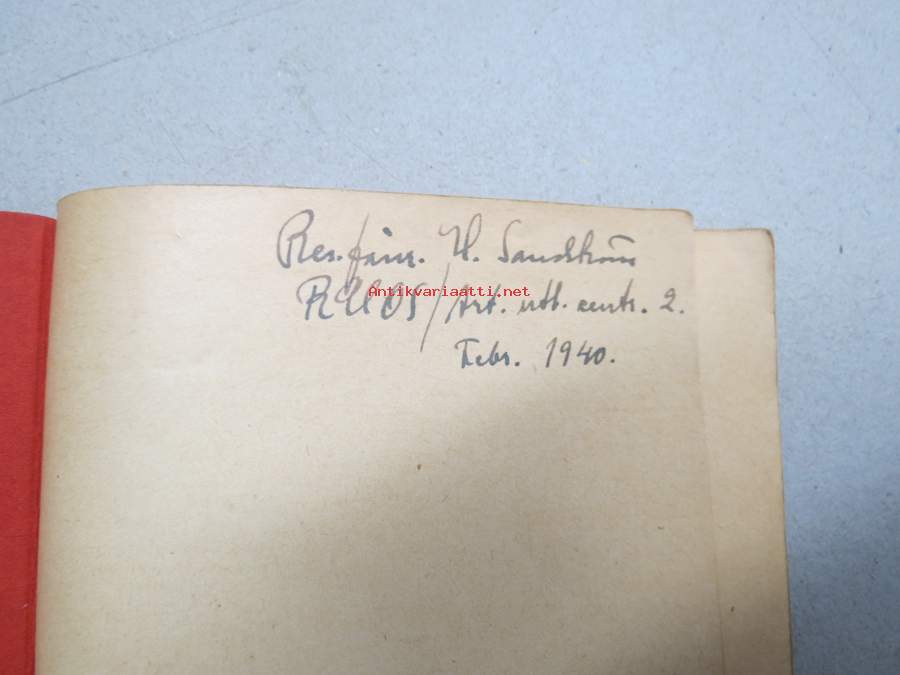 Res. fänr. H. Sandström
RUOS/Art. utb. centr. 2.
Antikvariaatti.net
Febr. 1940.